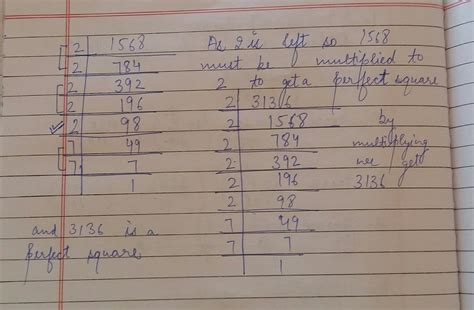 2 | 1568
2 | 784
2 | 392
2 | 196
2 | 98
7 | 49
7 | 7
1
and 3136 is a
perfect square
As 2 is left so 1568
must be multiplied to
2 to get a perfect square
2 | 3136
2 | 1568
2 | 784
2 | 392
2 | 196
2 | 98
7 | 49
7 | 7
1
by
multiplying
we get
3136